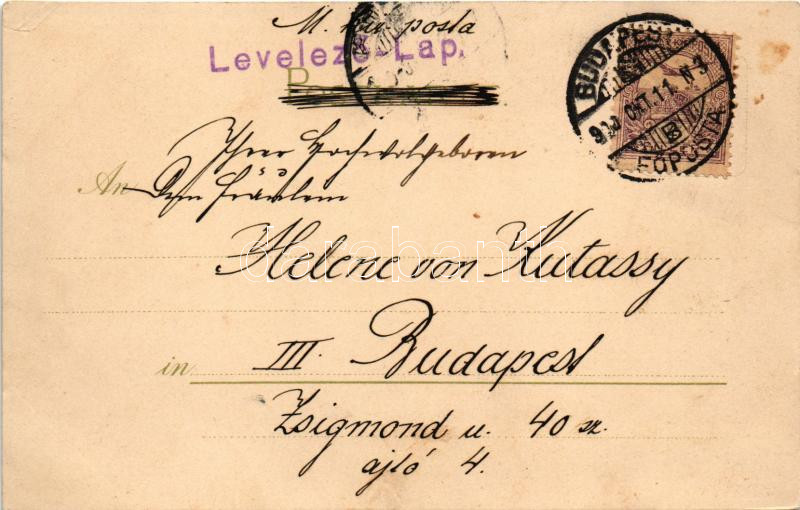 M. kir. posta
Levelező-Lap.
BUDAPEST
900 OKT. 11. N 3
B
FŐPOSTA
Ihrer Hochwolgeboren
An Dem Fräulein
Helene von Kutassy
darabanth.com
in III. Budapest
Zsigmond u. 40 sz.
ajtó 4.